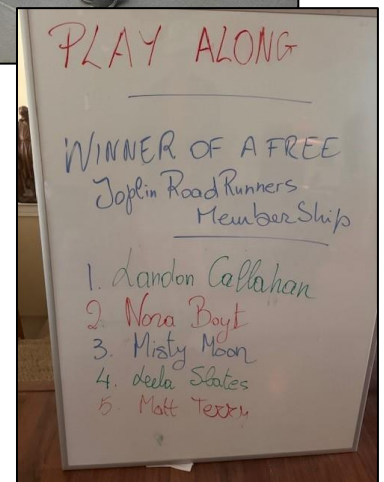 PLAY ALONG
WINNER OF A FREE
Joplin RoadRunners
MemberShip
1. Landon Callahan
2. Nora Boyt
3. Misty Moon
4. Leela Slates
5. Matt Terry